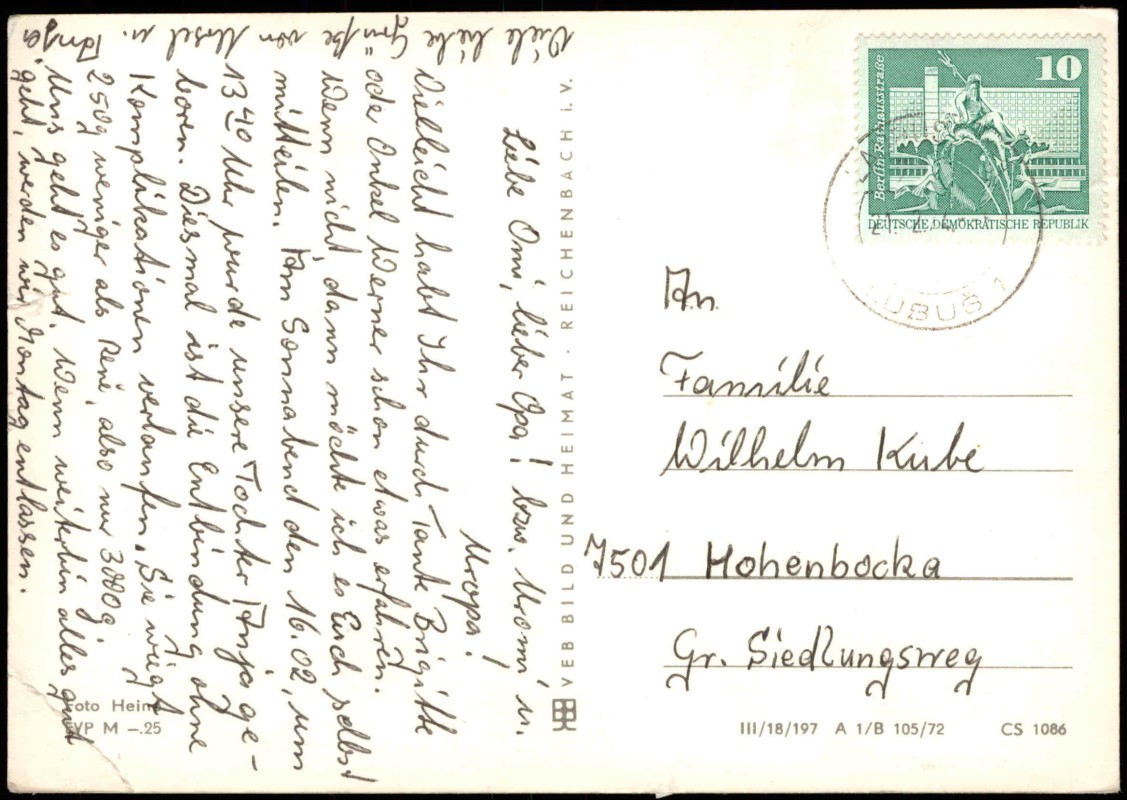 Liebe Omi, lieber Opa! bzw. Uromi u.
Uropa!
Vielleicht habt Ihr durch Tante Brigitte
oder Onkel Werner schon etwas erfahren.
Wenn nicht, dann möchte ich es Euch selbst
mitteilen. Am Sonnabend den 16.02, um
13 40 Uhr wurde unsere Tochter Anja ge-
boren. Diesmal ist die Entbindung ohne
Komplikationen verlaufen. Sie wiegt
250g weniger als René, also nur 3000g.
Uns geht es gut. Wenn weiterhin alles gut
geht, werden wir Montag entlassen.
Viele liebe Grüße von Ursel u. Anja
VEB BILD UND HEIMAT · REICHENBACH i. V.
Foto Heine
EVP M –.25
10
Berlin-Rathausstraße
DEUTSCHE DEMOKRATISCHE REPUBLIK
An
Familie
Wilhelm Kube
7501 Hohenbocka
Gr. Siedlungsweg
III/18/197 A 1/B 105/72 CS 1086